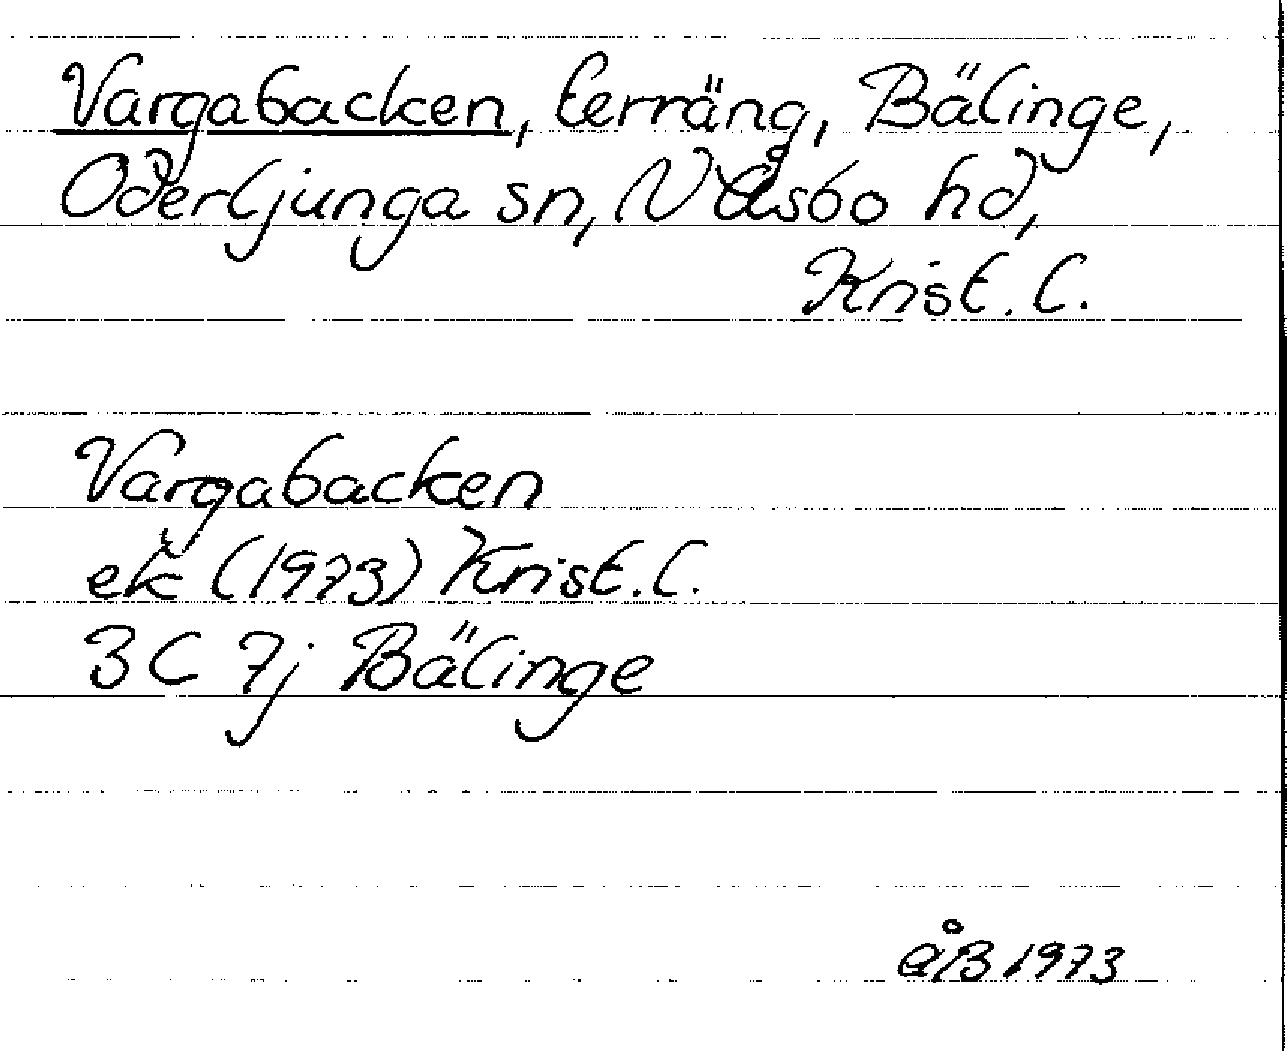 Vargabacken, terräng, Bälinge,
Oderljunga sn, N Åsbo hd,
Krist. l.
Vargabacken
ek (1973) Krist. l.
3C 7j Bälinge
åB 1973